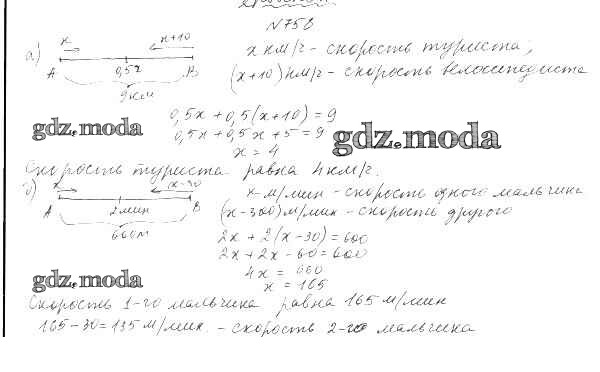 N 758
а) x x+10 x км/г - скорость туриста;
A 0,5ч B (x+10) км/г - скорость велосипедиста
9 км
0,5x + 0,5(x+10) = 9
gdz.moda 0,5x + 0,5x + 5 = 9 gdz.moda
x = 4
Скорость туриста равна 4 км/г.
б) x (x-30) x м/мин - скорость одного мальчика
A 2 мин B (x-300) м/мин - скорость другого
600м
2x + 2(x-30) = 600
2x + 2x - 60 = 600
gdz.moda 4x = 660
x = 165
Скорость 1-го мальчика равна 165 м/мин
165-30=135 м/мин - скорость 2-го мальчика